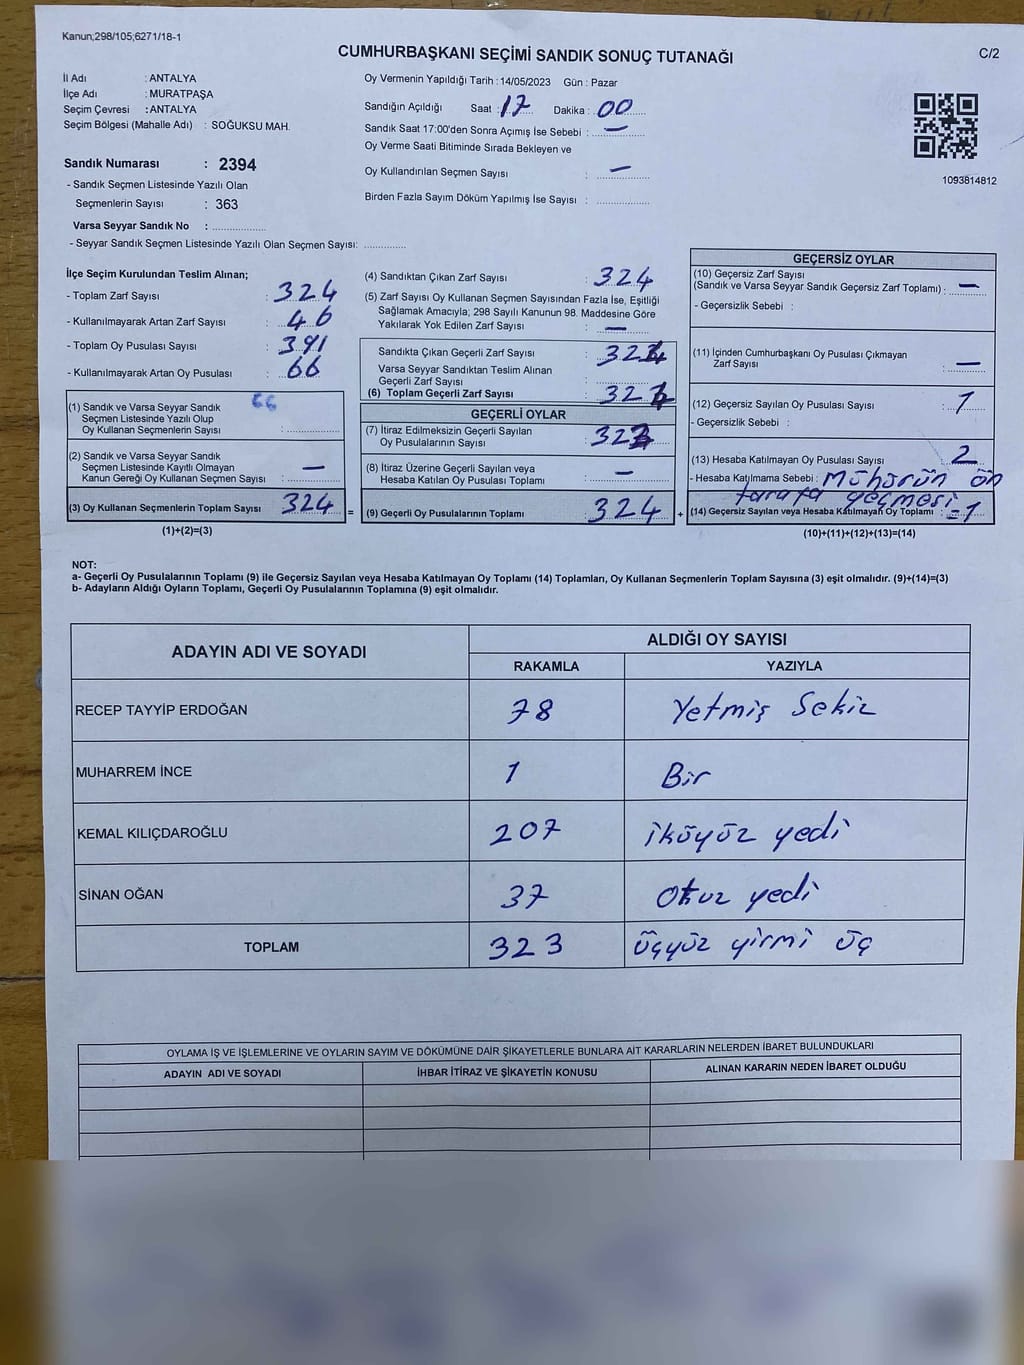 Kanun;298/105;6271/18-1
CUMHURBAŞKANI SEÇİMİ SANDIK SONUÇ TUTANAĞI
C/2
İl Adı : ANTALYA
İlçe Adı : MURATPAŞA
Seçim Çevresi : ANTALYA
Seçim Bölgesi (Mahalle Adı) : SOĞUKSU MAH.
Oy Vermenin Yapıldığı Tarih : 14/05/2023 Gün : Pazar
Sandığın Açıldığı Saat : 17 Dakika : 00
Sandık Saat 17:00'den Sonra Açımış İse Sebebi : —
Oy Verme Saati Bitiminde Sırada Bekleyen ve
Oy Kullandırılan Seçmen Sayısı : —
Birden Fazla Sayım Döküm Yapılmış İse Sayısı : ............
1093814812
Sandık Numarası : 2394
- Sandık Seçmen Listesinde Yazılı Olan
Seçmenlerin Sayısı : 363
Varsa Seyyar Sandık No : ............
- Seyyar Sandık Seçmen Listesinde Yazılı Olan Seçmen Sayısı: ............
İlçe Seçim Kurulundan Teslim Alınan;
- Toplam Zarf Sayısı : 324
- Kullanılmayarak Artan Zarf Sayısı : 46
- Toplam Oy Pusulası Sayısı : 391
- Kullanılmayarak Artan Oy Pusulası : 66
(1) Sandık ve Varsa Seyyar Sandık 66
Seçmen Listesinde Yazılı Olup
Oy Kullanan Seçmenlerin Sayısı : ............
(2) Sandık ve Varsa Seyyar Sandık
Seçmen Listesinde Kayıtlı Olmayan
Kanun Gereği Oy Kullanan Seçmen Sayısı : —
(3) Oy Kullanan Seçmenlerin Toplam Sayısı : 324 =
(1)+(2)=(3)
(4) Sandıktan Çıkan Zarf Sayısı : 324
(5) Zarf Sayısı Oy Kullanan Seçmen Sayısından Fazla İse, Eşitliği
Sağlamak Amacıyla; 298 Sayılı Kanunun 98. Maddesine Göre
Yakılarak Yok Edilen Zarf Sayısı : —
Sandıkta Çıkan Geçerli Zarf Sayısı : 324
Varsa Seyyar Sandıktan Teslim Alınan
Geçerli Zarf Sayısı : ............
(6) Toplam Geçerli Zarf Sayısı : 32
GEÇERLİ OYLAR
(7) İtiraz Edilmeksizin Geçerli Sayılan
Oy Pusulalarının Sayısı : 323
(8) İtiraz Üzerine Geçerli Sayılan veya
Hesaba Katılan Oy Pusulası Toplamı : —
(9) Geçerli Oy Pusulalarının Toplamı : 324 +
GEÇERSİZ OYLAR
(10) Geçersiz Zarf Sayısı
(Sandık ve Varsa Seyyar Sandık Geçersiz Zarf Toplamı) : —
- Geçersizlik Sebebi :
(11) İçinden Cumhurbaşkanı Oy Pusulası Çıkmayan
Zarf Sayısı : —
(12) Geçersiz Sayılan Oy Pusulası Sayısı : 1
- Geçersizlik Sebebi :
(13) Hesaba Katılmayan Oy Pusulası Sayısı : 2
- Hesaba Katılmama Sebebi : mühürün ön
tarafa geçmesi
(14) Geçersiz Sayılan veya Hesaba Katılmayan Oy Toplamı : =1
(10)+(11)+(12)+(13)=(14)
NOT:
a- Geçerli Oy Pusulalarının Toplamı (9) ile Geçersiz Sayılan veya Hesaba Katılmayan Oy Toplamı (14) Toplamları, Oy Kullanan Seçmenlerin Toplam Sayısına (3) eşit olmalıdır. (9)+(14)=(3)
b- Adayların Aldığı Oyların Toplamı, Geçerli Oy Pusulalarının Toplamına (9) eşit olmalıdır.
ADAYIN ADI VE SOYADI ALDIĞI OY SAYISI
RAKAMLA YAZIYLA
RECEP TAYYİP ERDOĞAN 78 Yetmiş Sekiz
MUHARREM İNCE 1 Bir
KEMAL KILIÇDAROĞLU 207 iküyüz yedi
SİNAN OĞAN 37 Otuz yedi
TOPLAM 323 üçyüz yirmi üç
OYLAMA İŞ VE İŞLEMLERİNE VE OYLARIN SAYIM VE DÖKÜMÜNE DAİR ŞİKAYETLERLE BUNLARA AİT KARARLARIN NELERDEN İBARET BULUNDUKLARI
ADAYIN ADI VE SOYADI İHBAR İTİRAZ VE ŞİKAYETİN KONUSU ALINAN KARARIN NEDEN İBARET OLDUĞU